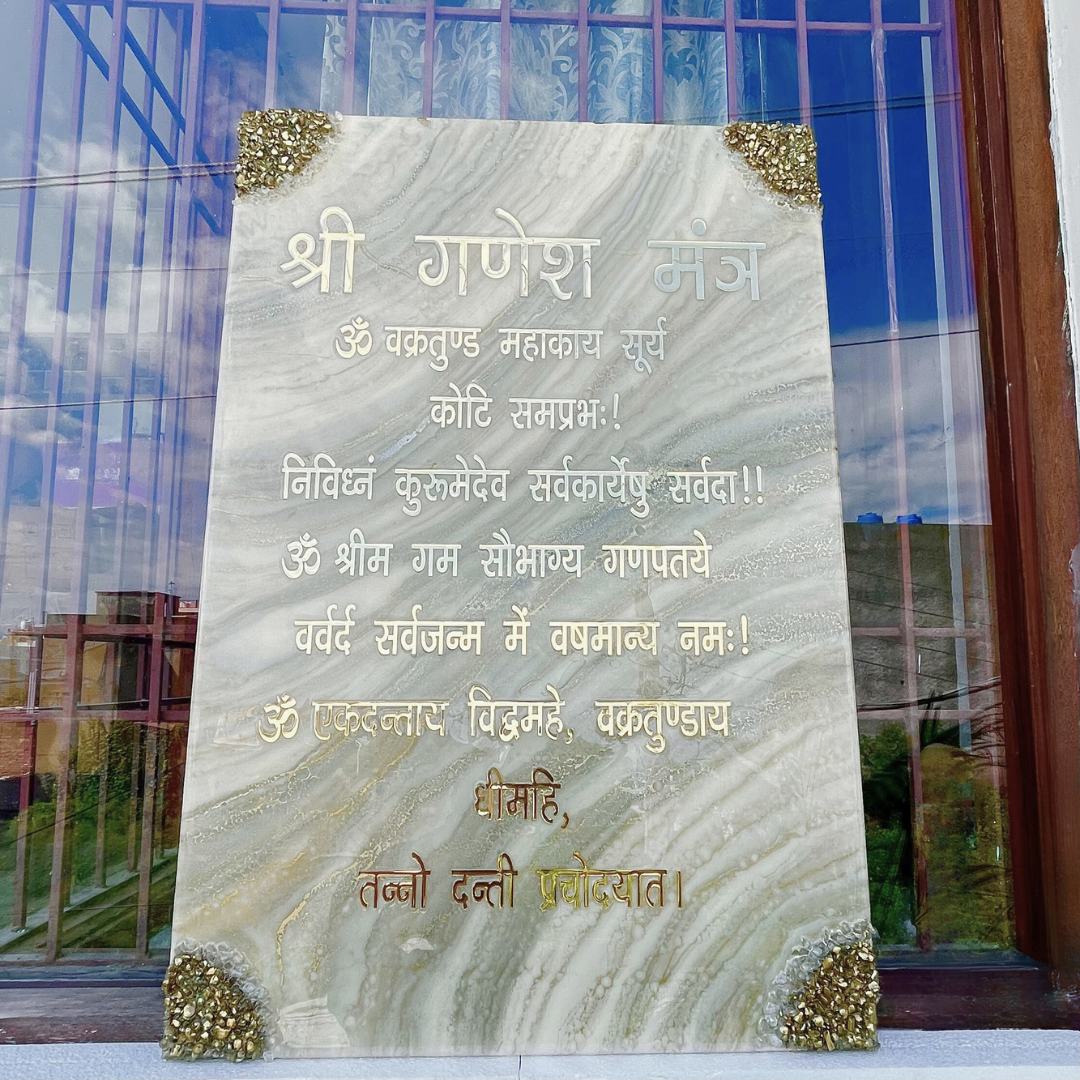 श्री गणेश मंत्र
ॐ वक्रतुण्ड महाकाय सूर्य
कोटि समप्रभः!
निविध्नं कुरूमेदेव सर्वकार्येषु सर्वदा!!
ॐ श्रीम गम सौभाग्य गणपतये
वर्वर्द सर्वजन्म में वषमान्य नमः!
ॐ एकदन्ताय विद्वमहे, वक्रतुण्डाय
धीमहि,
तन्नो दन्ती प्रचोदयात।